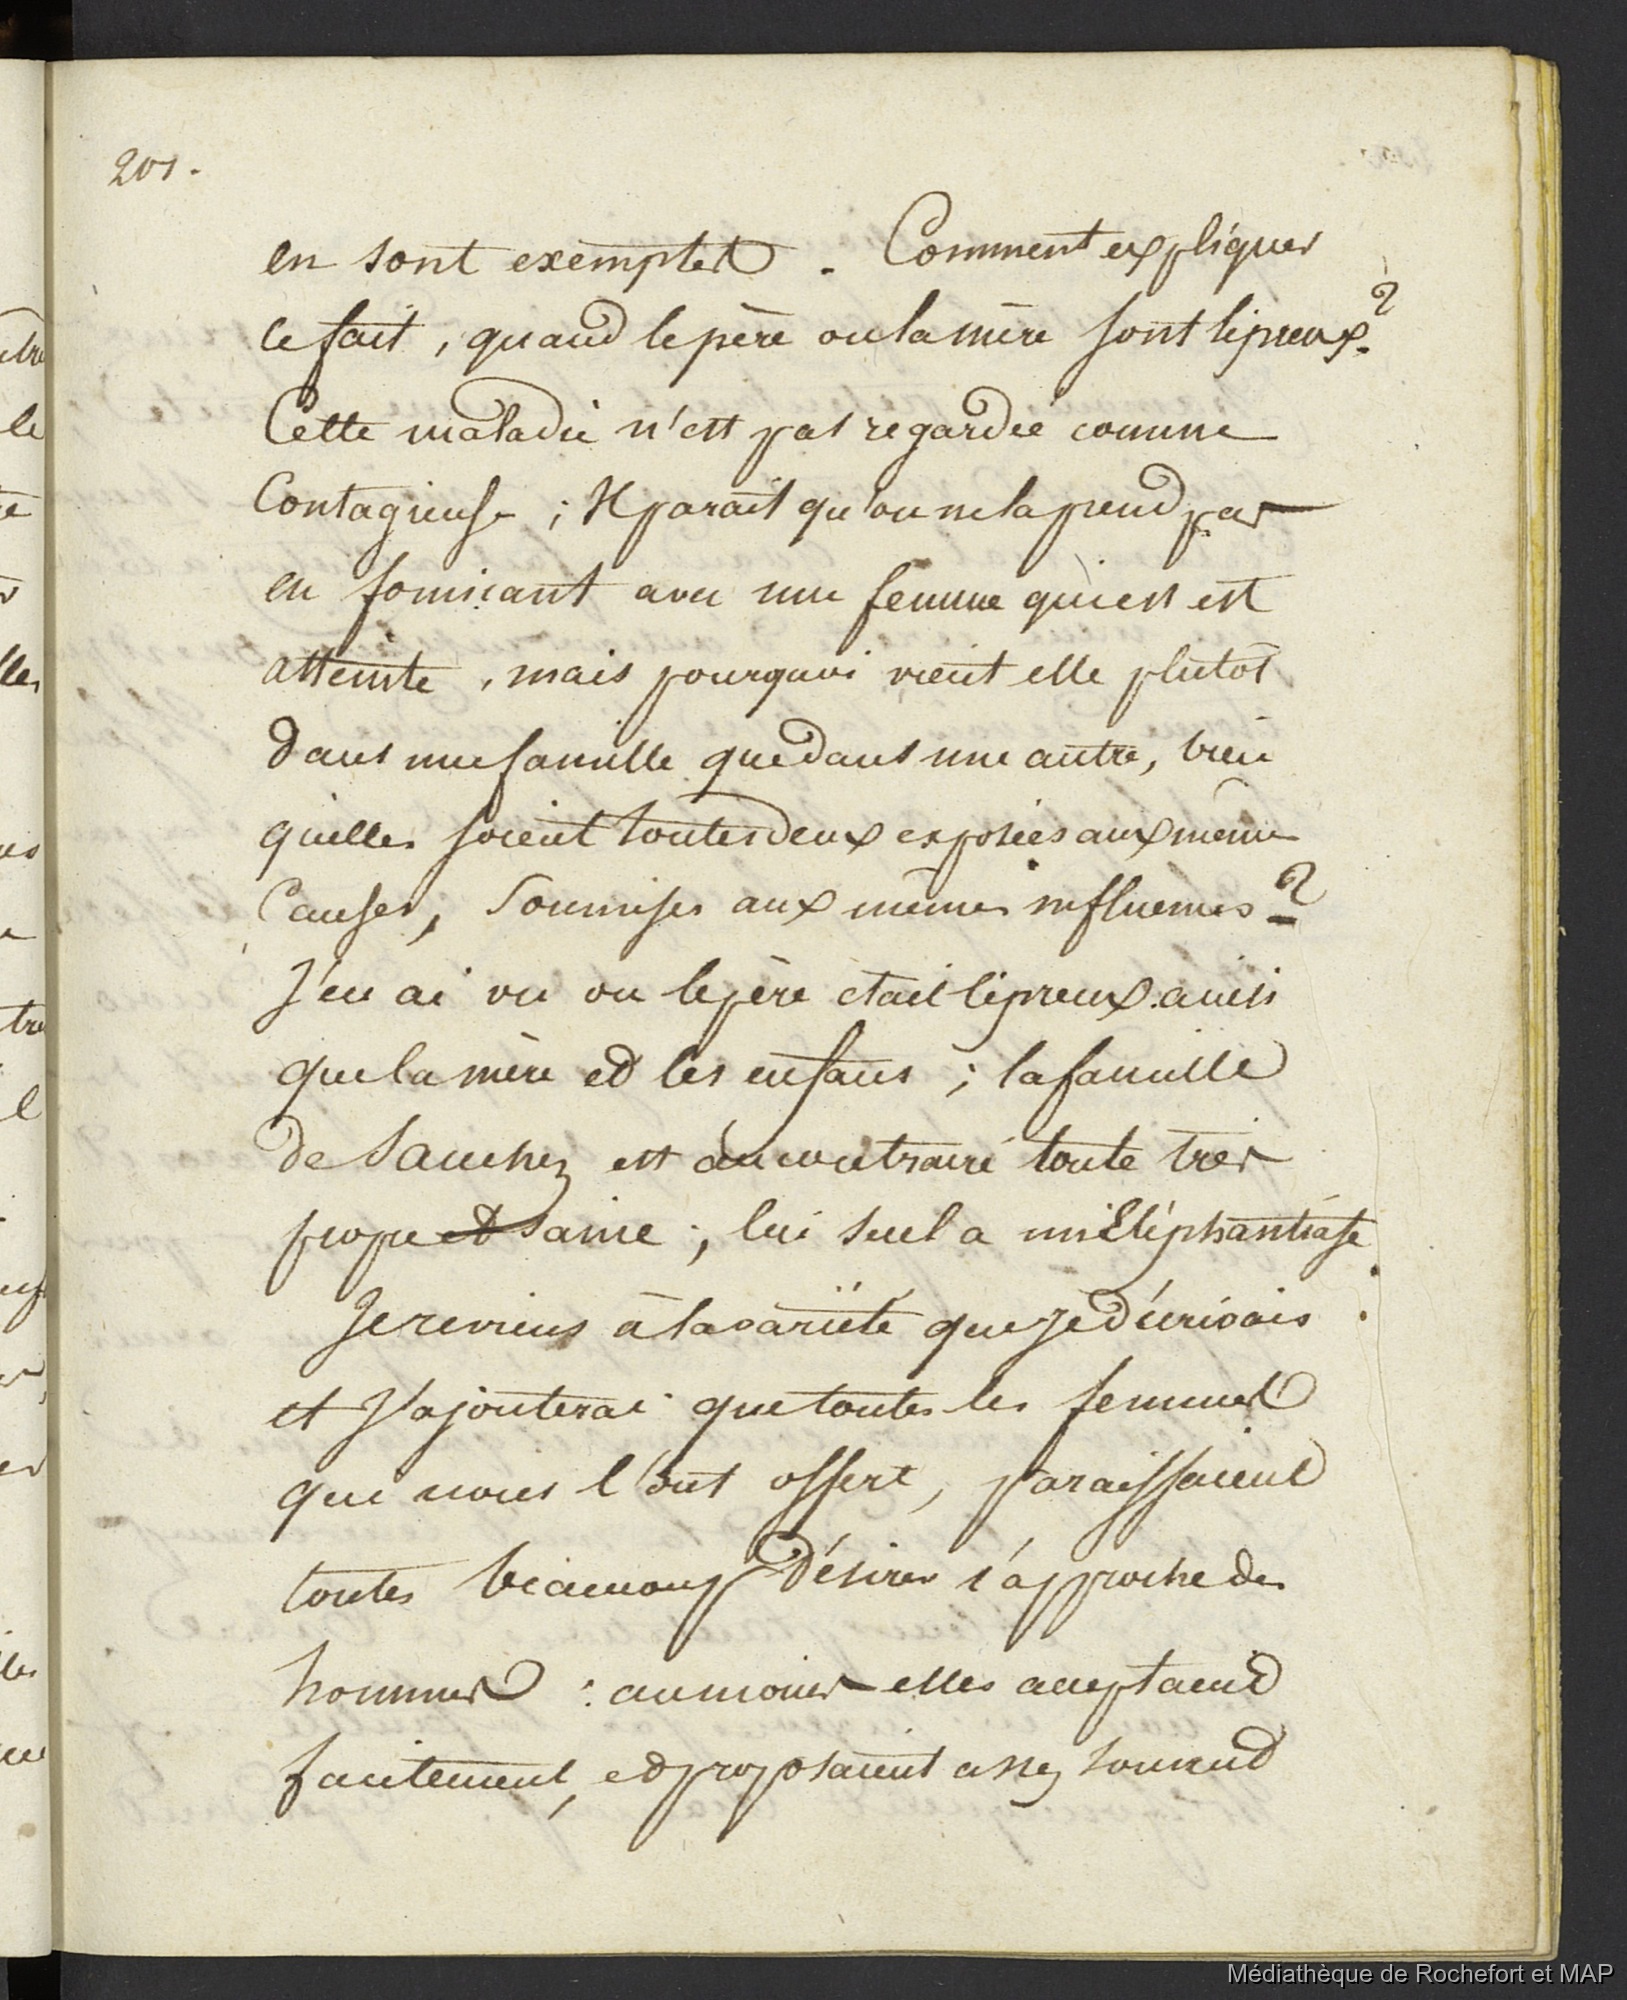 201.
en sont exemptes. Comment expliquer
ce fait, quand le père ou la mère sont lépreux?
Cette maladie n'est pas regardée comme
Contagieuse; Il parait qu'on ne la prend pas
en fornicant avec une femme qui en est
atteinte, mais pourquoi vient elle plutot
dans une famille que dans une autre, bien
qu'elles soient toutes deux exposées aux même
Causes, Soumises aux mêmes influences?
J'en ai vu ou le père etait lépreux ainsi
que la mère et les enfans; la famille
de Sanchez est au contraire toute très
propre et saine; lui seul a un Eléphantiase.
Je reviens à la variété que je décrivais
et j'ajouterai que toutes les femmes
qui nous l'ont offert, paraissaient
toutes beaucoup désirer l'approche des
hommes: au moins elles acceptaient
facilement, et proposaient assez souvent
Médiathèque de Rochefort et MAP